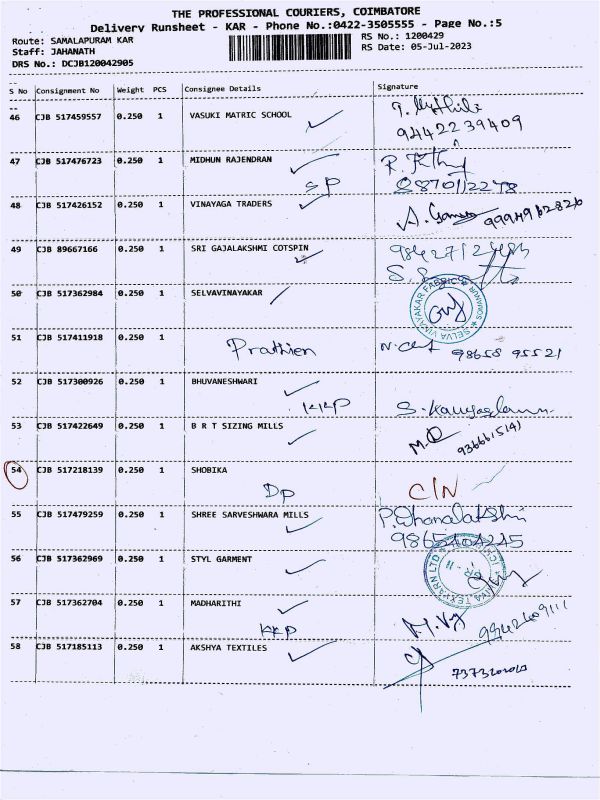 THE PROFESSIONAL COURIERS, COIMBATORE
Delivery Runsheet - KAR - Phone No.:0422-3505555 - Page No.:5
Route: SAMALAPURAM KAR
RS No.: 1200429
Staff: JAHANATH
RS Date: 05-Jul-2023
DRS No.: DCJB120042905
S No Consignment No Weight PCS Consignee Details Signature
46 CJB 517459557 0.250 1 VASUKI MATRIC SCHOOL
9442239409
47 CJB 517476723 0.250 1 MIDHUN RAJENDRAN
SP
48 CJB 517426152 0.250 1 VINAYAGA TRADERS
49 CJB 89667166 0.250 1 SRI GAJALAKSHMI COTSPIN
50 CJB 517362984 0.250 1 SELVAVINAYAKAR
SELVA VINAYAKAR FABRICS
SOMANUR
51 CJB 517411918 0.250 1
Prathien
98658 95521
52 CJB 517300926 0.250 1 BHUVANESHWARI
KKP
53 CJB 517422649 0.250 1 B R T SIZING MILLS
54 CJB 517218139 0.250 1 SHOBIKA
DP C/N
55 CJB 517479259 0.250 1 SHREE SARVESHWARA MILLS
P. Dhanalakshmi
56 CJB 517362969 0.250 1 STYL GARMENT
57 CJB 517362704 0.250 1 MADHARITHI
KKP
58 CJB 517185113 0.250 1 AKSHYA TEXTILES